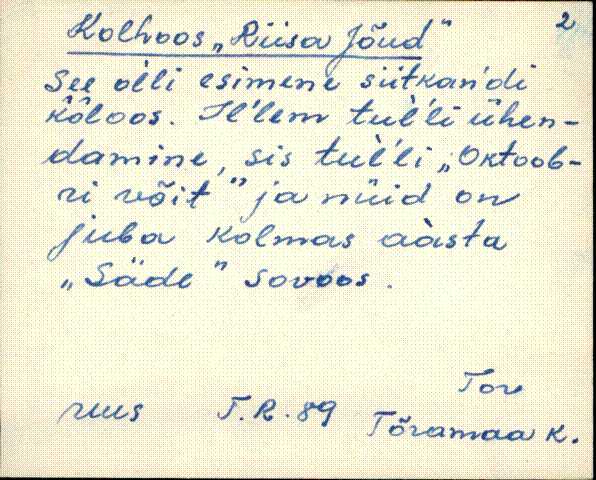 2
Kolhoos „Riisa Jõud"
See òlli esimene siitkan'di
kôloos. Il'lem tuĺ'li ühen-
damine, sis tuĺ'li „Oktoob-
ri võit" ja nüid on
juba kolmas aàsta
„Säde" sovoos.
Tor
ruus T.R. 89 Tõramaa k.